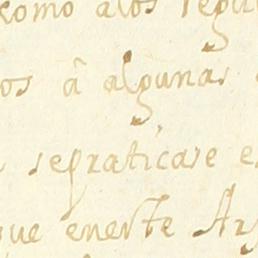 como alos
os â algunas
sepraticase
que eneste